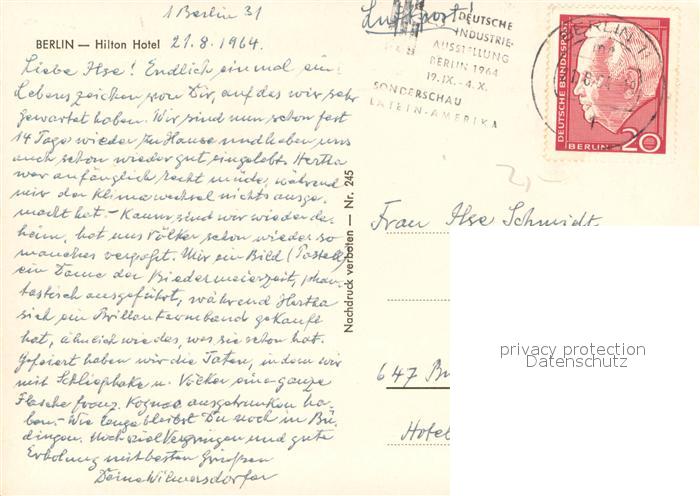 1 Berlin 31
BERLIN — Hilton Hotel 21.8.1964.
Liebe Ilse! Endlich einmal ein
Lebenszeichen von Dir, auf das wir sehr
gewartet haben. Wir sind nun schon fast
14 Tage wieder zu Hause und haben uns
auch schon wieder gut eingelebt. Hertha
war anfänglich recht müde, während
mir der Klimawechsel nichts ausge-
macht hat. - Kaum sind wir wieder da-
heim, hat uns Völker schon wieder so
manches verpaßt. Mir ein Bild (Pastell)
ein Dame der Biedermeierzeit, phan-
tastisch ausgeführt, während Hertha
sich ein Brillantarmband gekauft
hat, ähnlich wie das, was sie schon hat.
Gefeiert haben wir die Taten, indem wir
mit Schliephake u. Völker eine ganze
Flasche franz. Kognac ausgetrunken ha-
ben. - Wie lange bleibst Du noch in Bü-
dingen. Noch viel Vergnügen und gute
Erholung mit besten Grüßen
Deine Wilmersdorfer
Nachdruck verboten — Nr. 245
Luftpost!
DEUTSCHE
INDUSTRIE-
AUSSTELLUNG
BERLIN 1964
19.IX.-4.X.
SONDERSCHAU
LATEIN-AMERIKA
BERLIN
DEUTSCHE BUNDESPOST
BERLIN 20
2,-
Frau Ilse Schmidt
647 Bü
Hotel
privacy protection
Datenschutz